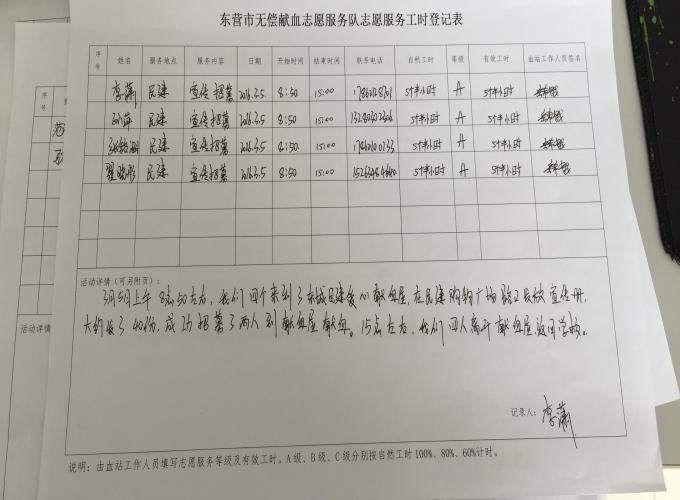 东营市无偿献血志愿服务队志愿服务工时登记表
序号 姓名 服务地点 服务内容 日期 开始时间 结束时间 联系电话 自然工时 等级 有效工时 血站工作人员签名
李潇 民建 宣传招募 2016.3.5 8:50 15:00 5个半小时 A 5个半小时
民建 宣传招募 2016.3.5 8:50 15:00 5个半小时 A 5个半小时
民建 宣传招募 2016.3.5 8:50 15:00 5个半小时 A 5个半小时
民建 宣传招募 2016.3.5 8:50 15:00 5个半小时 A 5个半小时
活动详情(可另附页):
3月5月上午8点50左右,我们四个来到了东城民建爱心献血屋,在民建购物广场路口发放宣传册,
大约发了40份,成功招募了两人到献血屋献血。15点左右,我们四人离开献血屋返回学校。
记录人:李潇
说明:由血站工作人员填写志愿服务等级及有效工时。A级、B级、C级分别按自然工时100%、80%、60%计时。
序号
活动详情
说明: